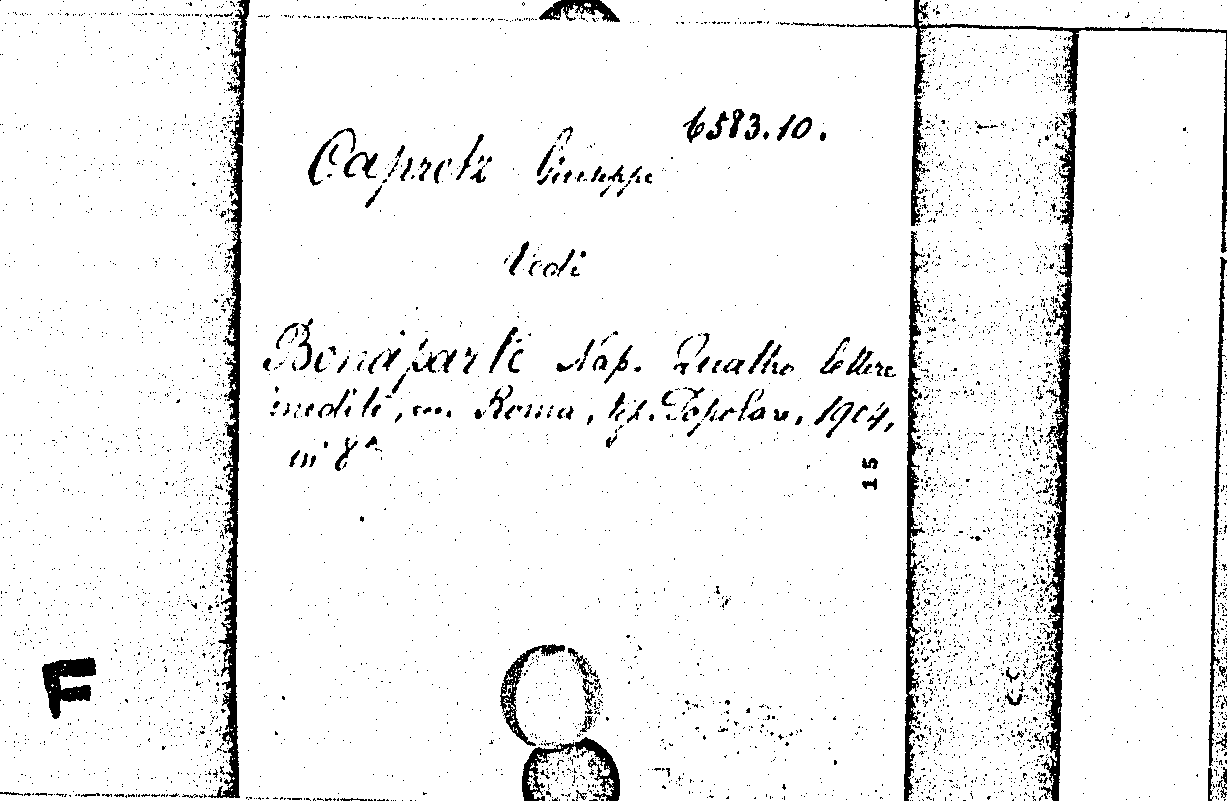 6583.10.
Capretz Giuseppe
Vedi
Bonaparte Nap. Quattro lettere
inedite, ecc. Roma, tip. Popolare, 1904,
in 8°
15
F